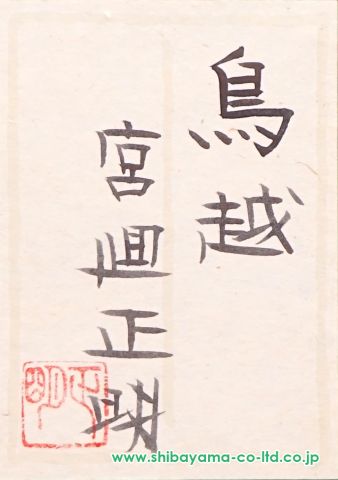 鳥越
宮廽正明
www.shibayama-co-ltd.co.jp